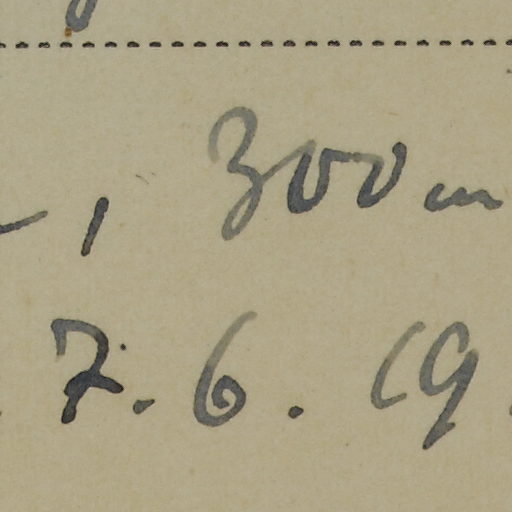 , 300 m
7. 6. 19